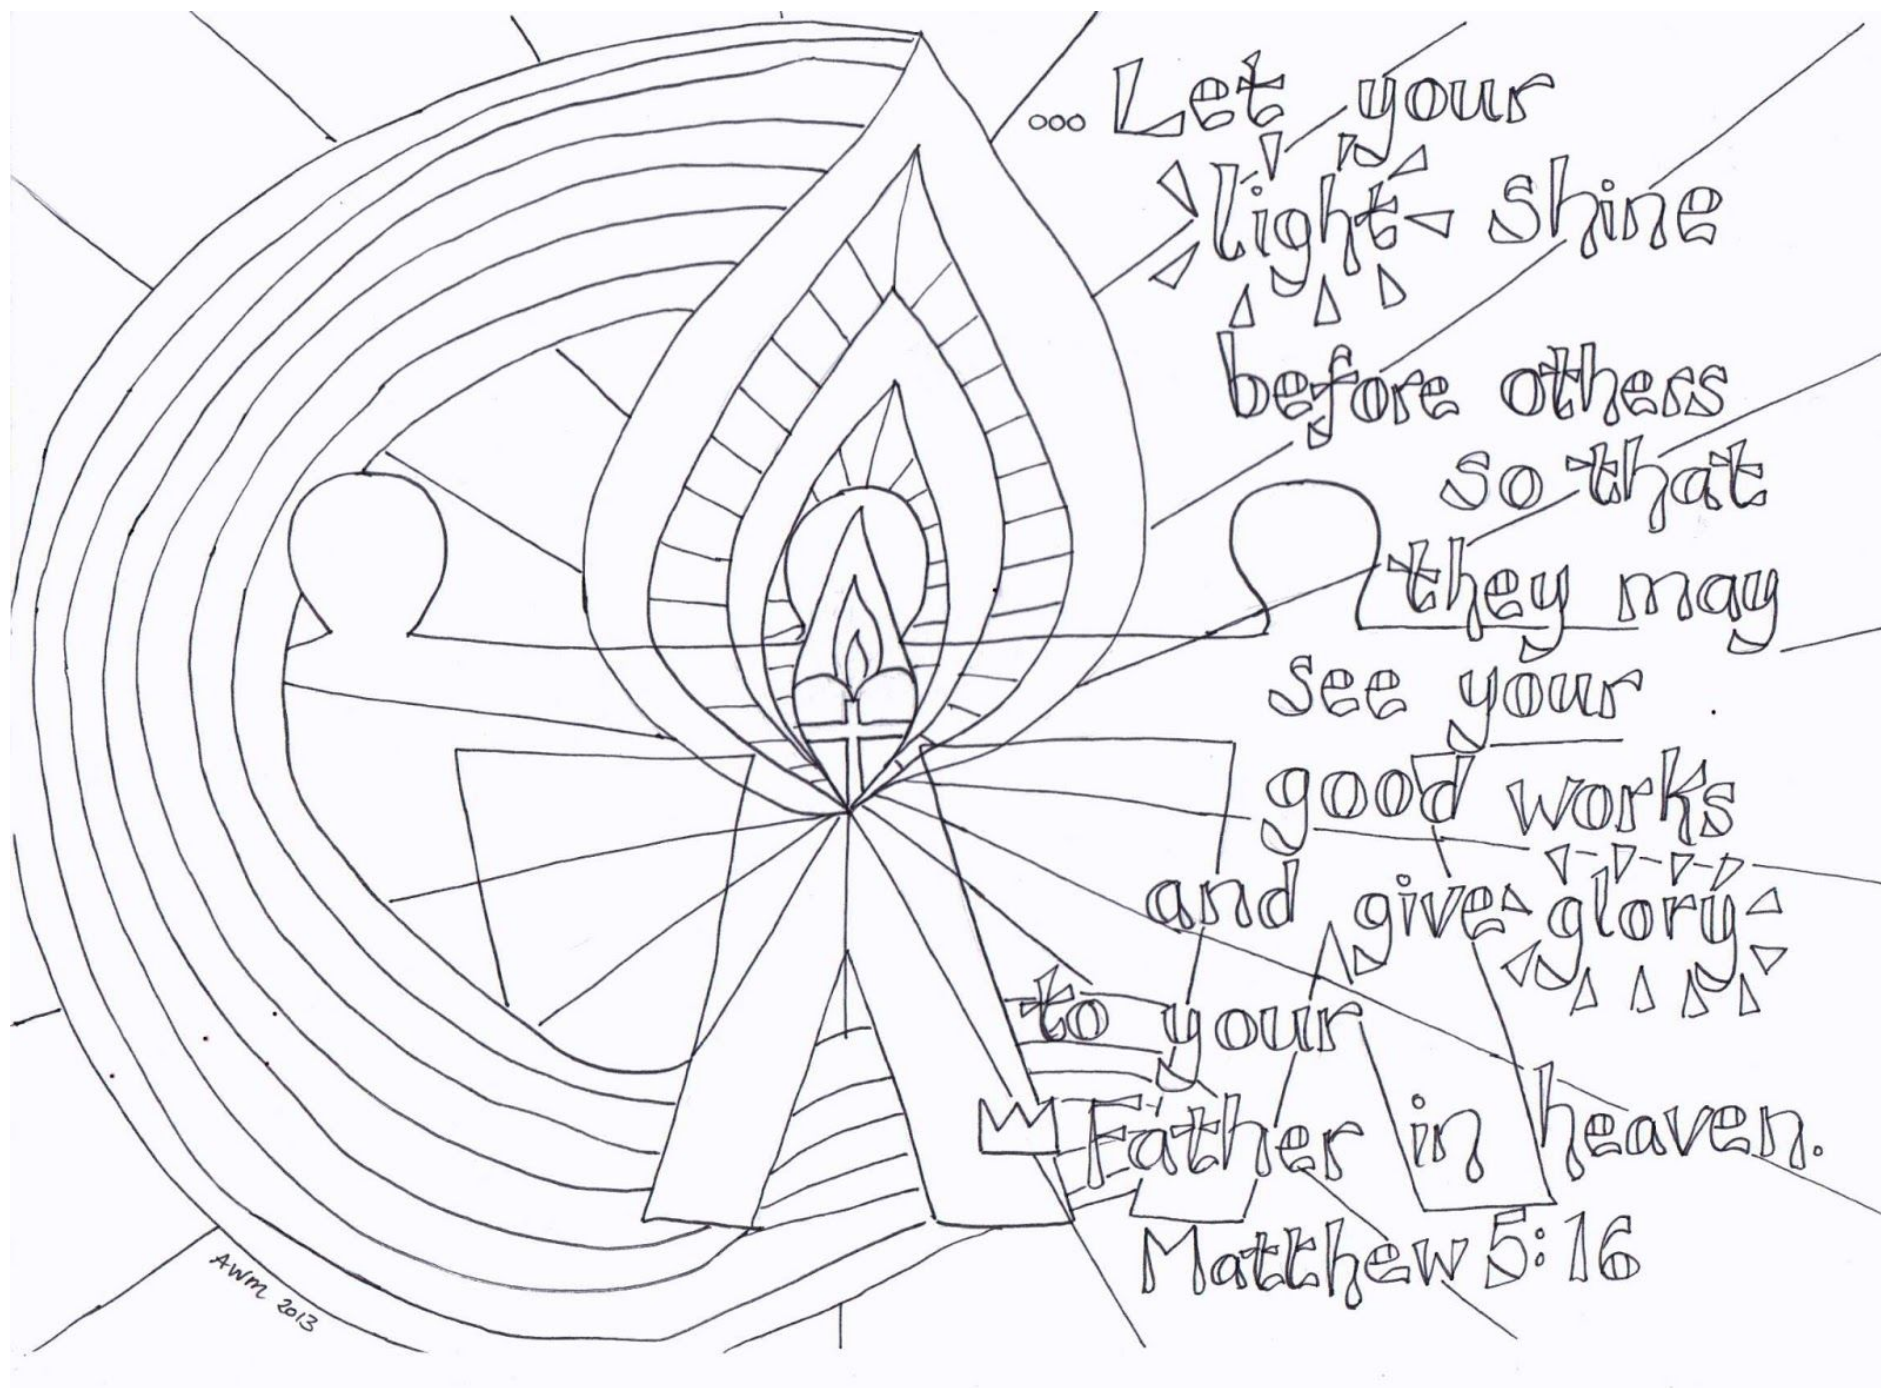 ... Let your
light shine
before others
so that
they may
see your
good works
and give glory
to your
Father in heaven.
Matthew 5:16
AWM 2013